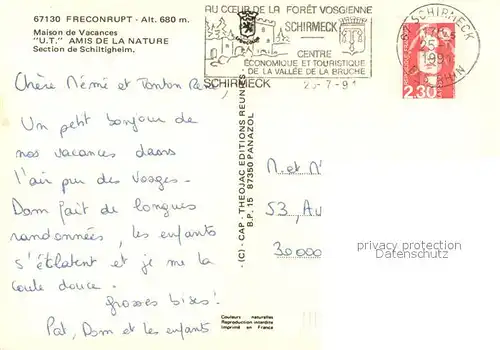 67130 FRECONRUPT - Alt. 680 m.
Maison de Vacances
"U.T." AMIS DE LA NATURE
Section de Schiltigheim.
AU CŒUR DE LA FORÊT VOSGIENNE
SCHIRMECK
CENTRE
ÉCONOMIQUE ET TOURISTIQUE
DE LA VALLÉE DE LA BRUCHE
SCHIRMECK 25-7-91
67 SCHIRMECK
25-7
1991
RHIN
2,30
Chère Mémé et Tonton
Un petit bonjour de
nos vacances dans
l'air pur des Vosges.
Dom fait de longues
randonnées, les enfants
s'éclatent et je me la
coule douce.
grosses bises!
Pat, Dom et les enfants
(C) - CAP - THEOJAC EDITIONS REUNIES
B.P. 15 87350 PANAZOL
M. et M
53, Au
30000
Couleurs naturelles
Reproduction interdite
Imprimé en France
philatelie collection
Protected Watermark